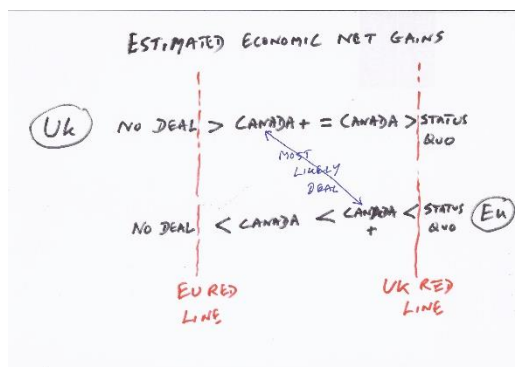 ESTIMATED ECONOMIC NET GAINS
Uk NO DEAL > CANADA + = CANADA > STATUS
QUO
MOST
LIKELY
DEAL
NO DEAL < CANADA < CANADA < STATUS Eu
+ QUO
EU RED
LINE
UK RED
LINE